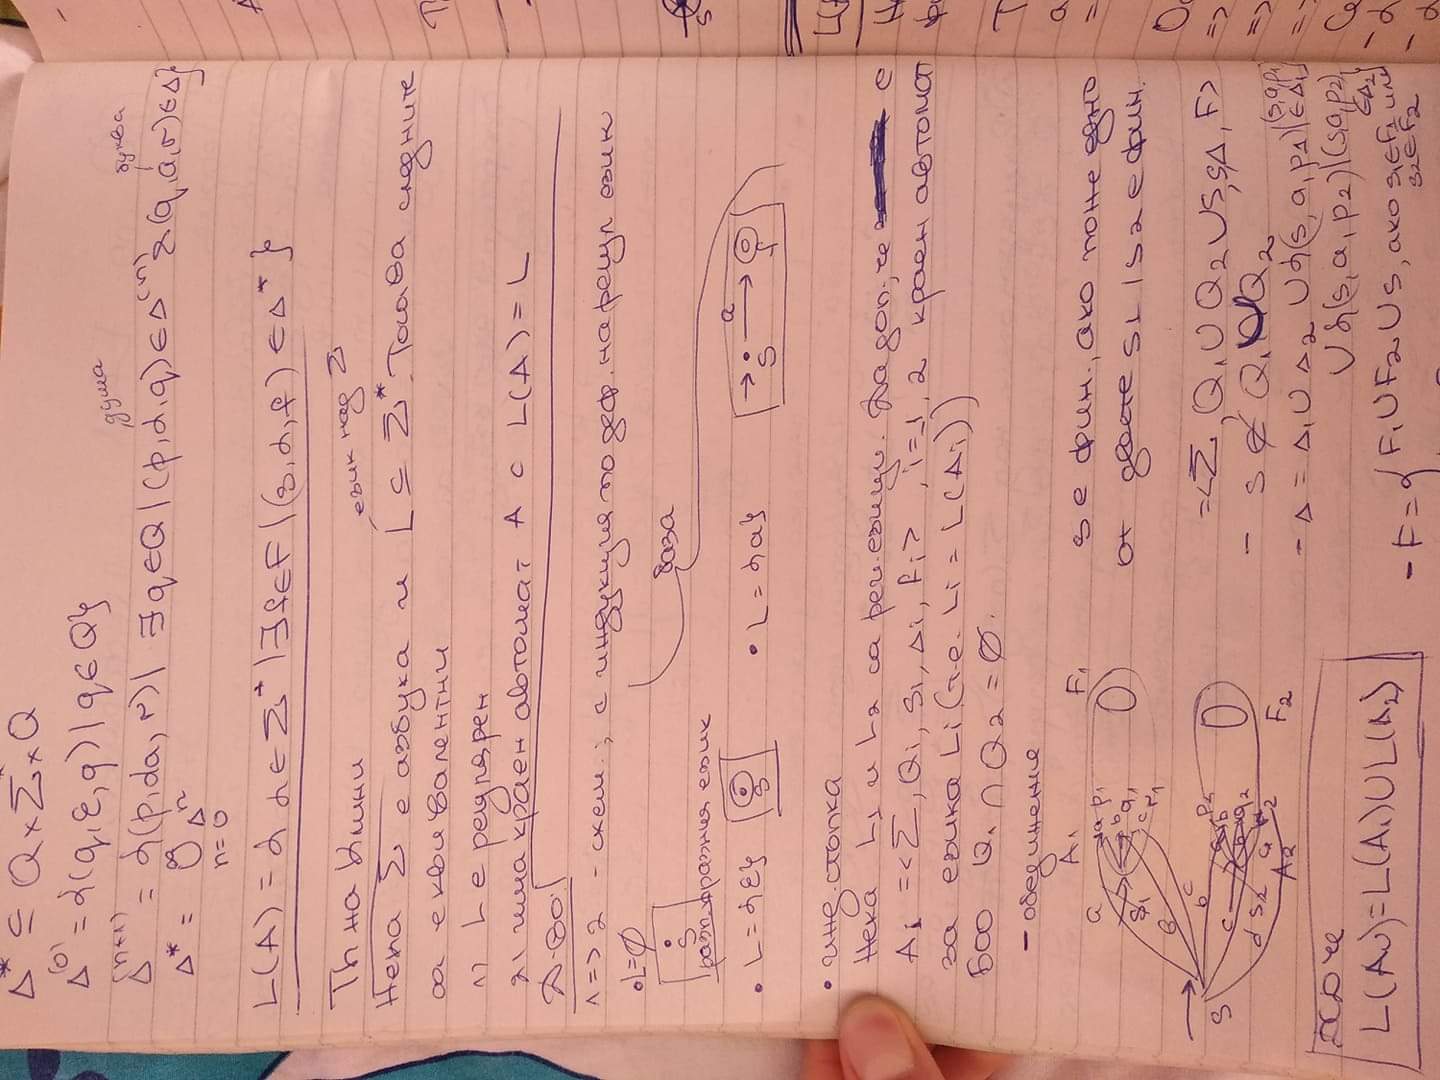 Δ* ⊆ Q × Σ* × Q
Δ⁽⁰⁾ = {(q, ε, q) | q ∈ Q}
Δ⁽ⁿ⁺¹⁾ = {(p, αa, r) | ∃ q ∈ Q | (p, α, q) ∈ Δ⁽ⁿ⁾ & (q, a, r) ∈ Δ}
дума
буква
Δ* = ∪ Δⁿ
n=0
L(A) = {α ∈ Σ* | ∃ f ∈ F | (s, α, f) ∈ Δ*}
Th на Клини
език над Σ
Нека Σ е азбука и L ⊆ Σ*. Тогава следните
са еквивалентни
1) L е регулярен
2) има краен автомат A с L(A) = L
Д-во:
1=>2 - схема: с индукция по деф. на регул. език
база
• L=∅
s
разпознава език
• L = {ε}
s
• L = {a}
→ • s a → f
• инд. стъпка
Нека L1 и L2 са рег. езици. Да доп., че е
Ai = <Σ, Qi, si, Δi, Fi>, i=1,2 краен автомат
за езика Li (т.е. Li = L(Ai))
БОО Q1 ∩ Q2 = ∅.
- обединение
A1
F1
s1
s
s2
A2
F2
s е фин., ако поне едно
от двете s1 | s2 е фин.
= <Σ, Q1 ∪ Q2 ∪ s, s, Δ, F>
- s ∉ Q1 ∪ Q2
- Δ = Δ1 ∪ Δ2 ∪ {(s, a, p1) | (s1, a, p1) ∈ Δ1}
∪ {(s, a, p2) | (s2, a, p2) ∈ Δ2}
- F = { F1 ∪ F2 ∪ s, ако s1 ∈ F1 или s2 ∈ F2
L(A) = L(A1) ∪ L(A2)